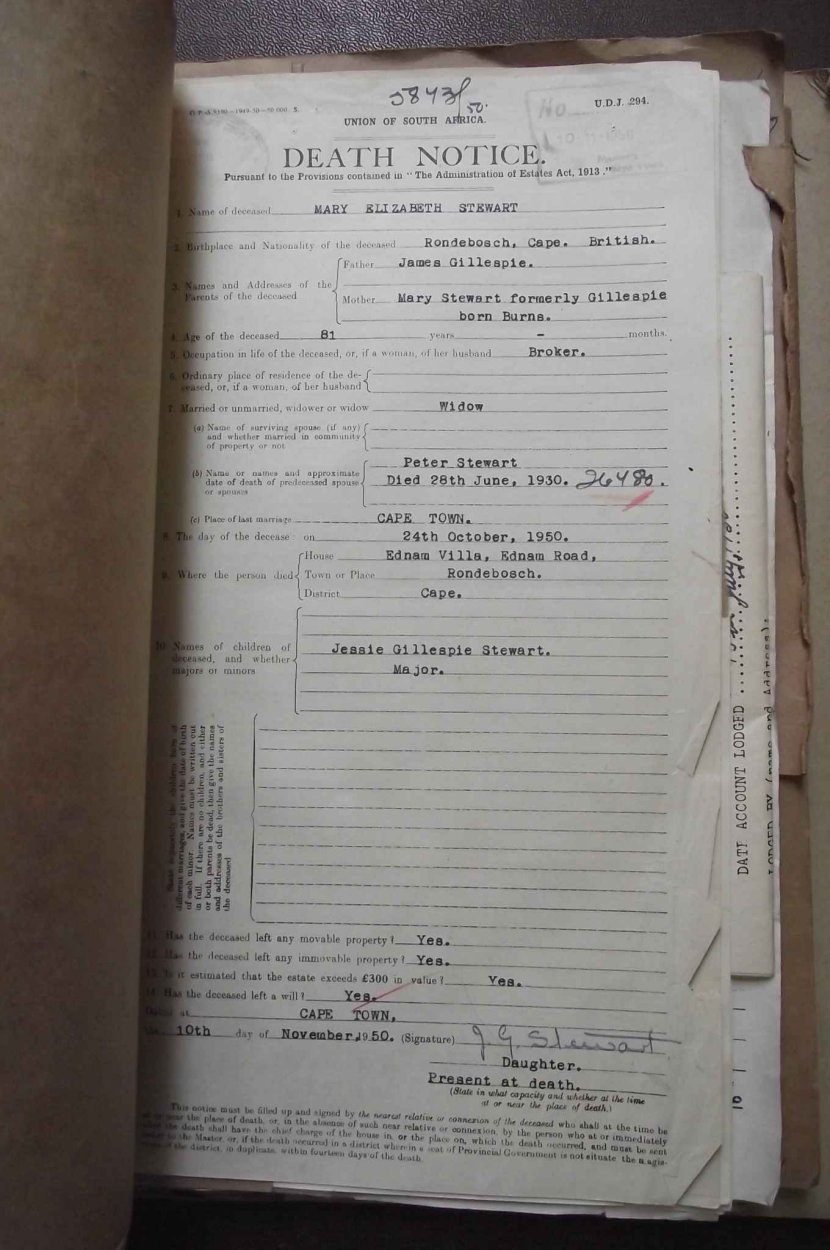 5843/50.
U.D.J. 294.
UNION OF SOUTH AFRICA.
DEATH NOTICE.
Pursuant to the Provisions contained in "The Administration of Estates Act, 1913."
1. Name of deceased MARY ELIZABETH STEWART
2. Birthplace and Nationality of the deceased Rondebosch, Cape. British.
3. Names and Addresses of the Parents of the deceased
Father James Gillespie.
Mother Mary Stewart formerly Gillespie
born Burns.
4. Age of the deceased 81 years – months.
5. Occupation in life of the deceased, or, if a woman, of her husband Broker.
6. Ordinary place of residence of the de-
ceased, or, if a woman, of her husband
7. Married or unmarried, widower or widow Widow
(a) Name of surviving spouse (if any)
and whether married in community
of property or not
(b) Name or names and approximate
date of death of predeceased spouse
or spouses
Peter Stewart
Died 28th June, 1930. 26480.
(c) Place of last marriage CAPE TOWN.
8. The day of the decease: on 24th October, 1950.
9. Where the person died
House Ednam Villa, Ednam Road,
Town or Place Rondebosch.
District Cape.
10. Names of children of
deceased, and whether
majors or minors
Jessie Gillespie Stewart.
Major.
different marriages, and give the date of birth
of each minor. Names must be written out
in full. If there are no children, and either
or both parents be dead, then give the names
and addresses of the brothers and sisters of
the deceased
11. Has the deceased left any movable property? Yes.
12. Has the deceased left any immovable property? Yes.
13. Is it estimated that the estate exceeds £300 in value? Yes.
14. Has the deceased left a will? Yes.
Dated at CAPE TOWN,
the 10th day of November, 1950. (Signature) J. G. Stewart
Daughter.
Present at death.
(State in what capacity and whether at the time
at or near the place of death.)
This notice must be filled up and signed by the nearest relative or connexion of the deceased who shall at the time be
at or near the place of death, or, in the absence of such near relative or connexion, by the person who at or immediately
after the death shall have the chief charge of the house in, or the place on, which the death occurred, and must be sent
to the Master, or, if the death occurred in a district wherein a seat of Provincial Government is not situate the magis-
of the district, in duplicate, within fourteen days of the death.
DATE ACCOUNT LODGED
LODGED BY (name and Address):